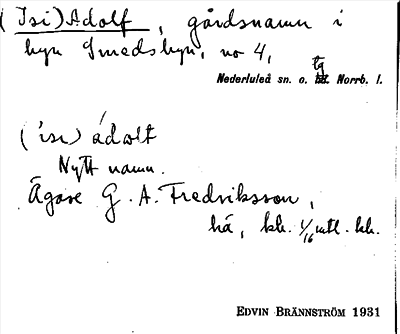 (Isi) Adolf, gårdsnamn i
byn Smedsbyn, no 4,
tg
Nederluleå sn. o. hd. Norrb. l.
(ˈisi) ádɔlf
Nytt namn.
Ägare G. A. Fredriksson,
bå, kh. 1/16 mtl. kh.
EDVIN BRÄNNSTRÖM 1931